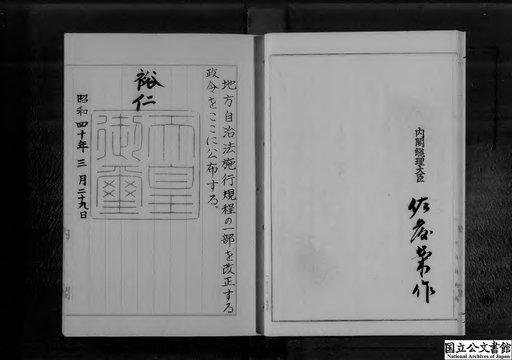 地方自治法施行規程の一部を改正する
政令をここに公布する。
裕仁
天皇
御璽
昭和四十年三月二十九日
内閣総理大臣
佐藤榮作
国立公文書館
National Archives of Japan